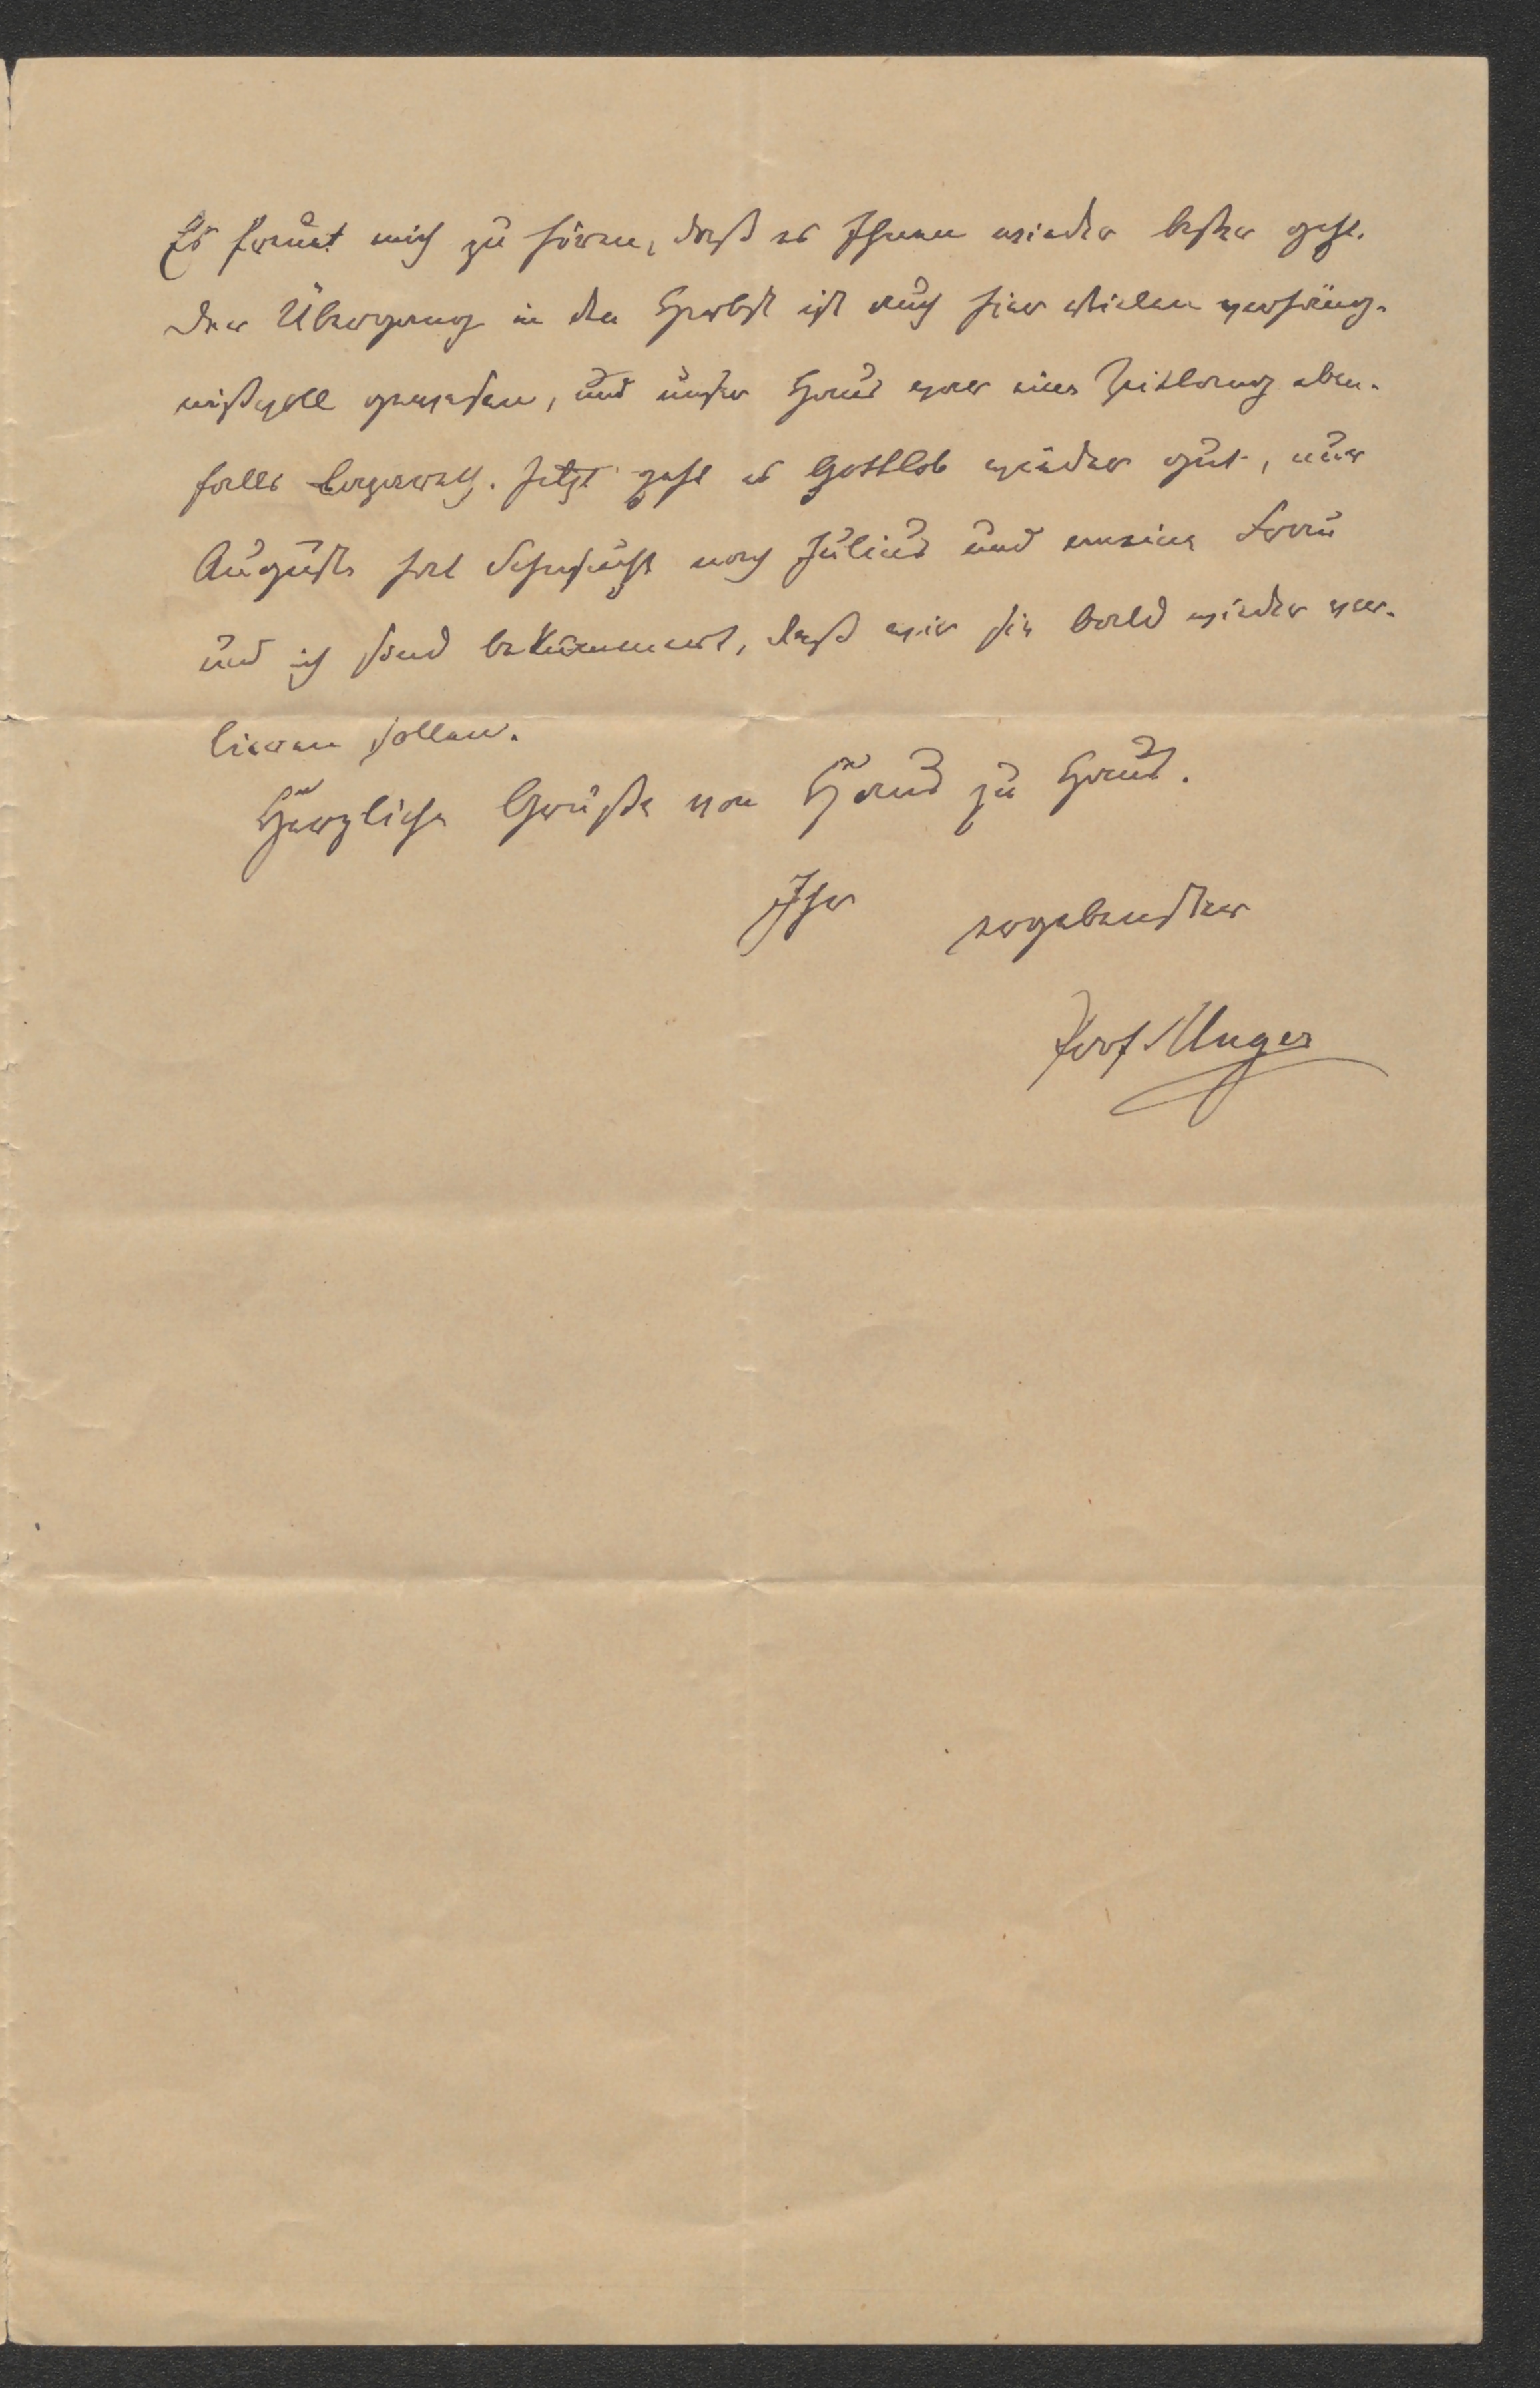 Es freut mich zu hören, daß es Ihnen wieder besser geht.
Der Übergang in den Herbst ist auch hier Vielen verhäng-
nißvoll gewesen, und unser Haus war eine Zeitlang eben-
falls Lazareth. Jetzt geht es Gottlob wieder gut, nur
Auguste hat Sehnsucht nach Julius und meine Frau
und ich sind bekümmert, daß wir sie bald wieder ver-
lieren sollen.
Herzliche Grüße von Haus zu Haus.
Ihr ergebenster
Prof. Unger